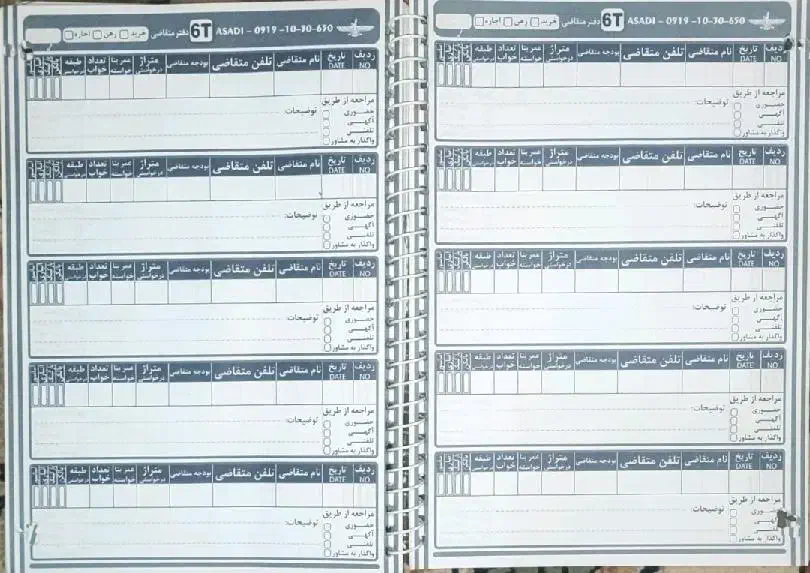 خرید رهن اجاره دفتر متقاضی 6T ASADI - 0919 -10-30-650
ردیف NO تاریخ DATE نام متقاضی تلفن متقاضی بودجه متقاضی متراژ درخواستی عمر بنا خواسته تعداد خواب طبقه درخواستی
مراجعه از طریق
حضوری توضیحات:
آگهی
تلفنی
واگذار به مشاور
ردیف NO تاریخ DATE نام متقاضی تلفن متقاضی بودجه متقاضی متراژ درخواستی عمر بنا خواسته تعداد خواب طبقه درخواستی
مراجعه از طریق
حضوری توضیحات:
آگهی
تلفنی
واگذار به مشاور
ردیف NO تاریخ DATE نام متقاضی تلفن متقاضی بودجه متقاضی متراژ درخواستی عمر بنا خواسته تعداد خواب طبقه درخواستی
مراجعه از طریق
حضوری توضیحات:
آگهی
تلفنی
واگذار به مشاور
ردیف NO تاریخ DATE نام متقاضی تلفن متقاضی بودجه متقاضی متراژ درخواستی عمر بنا خواسته تعداد خواب طبقه درخواستی
مراجعه از طریق
حضوری توضیحات:
آگهی
تلفنی
واگذار به مشاور
ردیف NO تاریخ DATE نام متقاضی تلفن متقاضی بودجه متقاضی متراژ درخواستی عمر بنا خواسته تعداد خواب طبقه درخواستی
مراجعه از طریق
حضوری توضیحات:
آگهی
تلفنی
واگذار به مشاور
خرید رهن اجاره دفتر متقاضی 6T ASADI - 0919 -10-30-650
ردیف NO تاریخ DATE نام متقاضی تلفن متقاضی بودجه متقاضی متراژ درخواستی عمر بنا خواسته تعداد خواب طبقه درخواستی
مراجعه از طریق
حضوری توضیحات:
آگهی
تلفنی
واگذار به مشاور
ردیف NO تاریخ DATE نام متقاضی تلفن متقاضی بودجه متقاضی متراژ درخواستی عمر بنا خواسته تعداد خواب طبقه درخواستی
مراجعه از طریق
حضوری توضیحات:
آگهی
تلفنی
واگذار به مشاور
ردیف NO تاریخ DATE نام متقاضی تلفن متقاضی بودجه متقاضی متراژ درخواستی عمر بنا خواسته تعداد خواب طبقه درخواستی
مراجعه از طریق
حضوری توضیحات:
آگهی
تلفنی
واگذار به مشاور
ردیف NO تاریخ DATE نام متقاضی تلفن متقاضی بودجه متقاضی متراژ درخواستی عمر بنا خواسته تعداد خواب طبقه درخواستی
مراجعه از طریق
حضوری توضیحات:
آگهی
تلفنی
واگذار به مشاور
ردیف NO تاریخ DATE نام متقاضی تلفن متقاضی بودجه متقاضی متراژ درخواستی عمر بنا خواسته تعداد خواب طبقه درخواستی
مراجعه از طریق
حضوری توضیحات:
آگهی
تلفنی
واگذار به مشاور